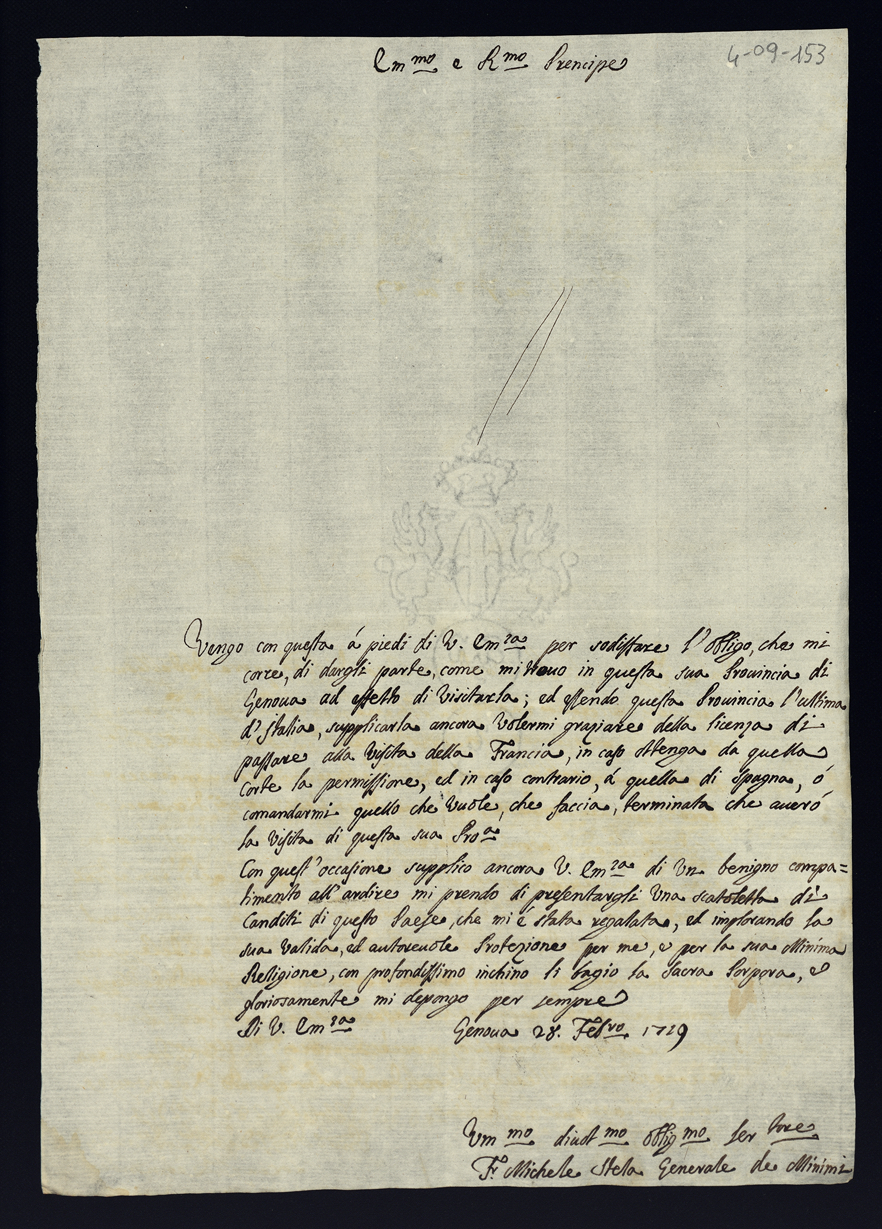 4-09-153
Em.mo e R.mo Prencipe
Vengo con questa á piedi di V. Em.za per sodisfare l'obligo, che mi
corre, di dargli parte, come mi trouo in questa sua Prouincia di
Genoua ad effetto di Visitarla; ed essendo questa Prouincia l'ultima
d'Italia, supplicarla ancora Volermi graziare della licenza di
passare alla Visita della Francia, in caso ottenga da quella
Corte la permissione, ed in caso contrario, á quella di Spagna, ó
comandarmi quello che Vuole, che faccia, terminata che aueró
la Visita di questa sua Pro.a
Con quest'occasione supplico ancora V. Em.za di Un benigno compa=
timento all'ardire mi prendo di presentargli Una scatoletta di
Canditi di questo Paese, che mi é stata regalata, ed implorando la
sua Valida, ed autoreuole Protezione per me, e per la sua Minima
Religione, con profondissimo inchino li bagio la Sacra Porpora, e
gloriosamente mi depongo per sempre
Di V. Em.za Genoua 28. Feb.ro 1719
Um.mo diuot.mo oblig.mo Ser.tore
Fr. Michele Stela Generale de Minimi